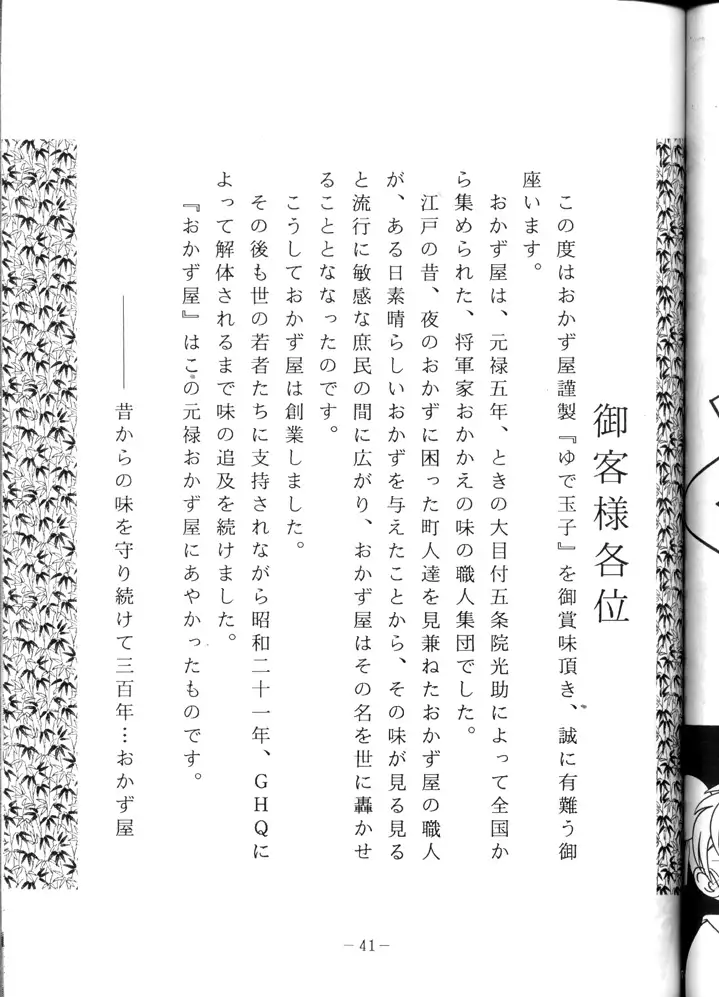 御客様各位
この度はおかず屋謹製『ゆで玉子』を御賞味頂き、誠に有難う御
座います。
おかず屋は、元禄五年、ときの大目付五条院光助によって全国か
ら集められた、将軍家おかかえの味の職人集団でした。
江戸の昔、夜のおかずに困った町人達を見兼ねたおかず屋の職人
が、ある日素晴らしいおかずを与えたことから、その味が見る見る
と流行に敏感な庶民の間に広がり、おかず屋はその名を世に轟かせ
ることとななったのです。
こうしておかず屋は創業しました。
その後も世の若者たちに支持されながら昭和二十一年、ＧＨＱに
よって解体されるまで味の追及を続けました。
『おかず屋』はこの元禄おかず屋にあやかったものです。
――― 昔からの味を守り続けて三百年…おかず屋
－41－